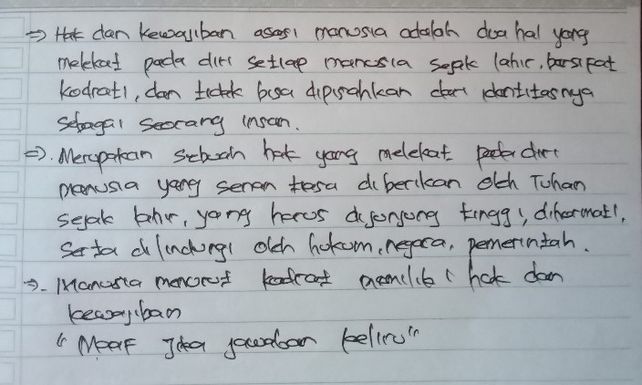 => Hak dan kewajiban asasi manusia adalah dua hal yang
melekat pada diri setiap manusia sejak lahir, bersifat
kodrati, dan tidak bisa dipisahkan dari identitasnya
sebagai seorang insan.
=>. Merupakan sebuah hak yang melekat pada diri
manusia yang senan tiasa diberikan oleh Tuhan
sejak lahir, yang harus dijunjung tinggi, dihormati,
serta dilindungi oleh hukum, negara, pemerintah.
=>. Manusia menurut kodrat memiliki hak dan
kewajiban
"Maaf Jika jawaban keliru"